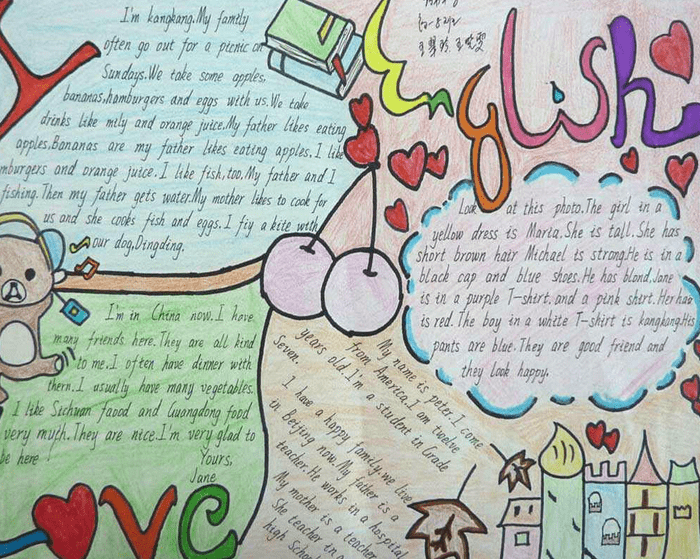 I'm kangkang.My family
often go out for a picnic on
Sundays.We take some apples,
bananas,hamburgers and eggs with us.We take
drinks like mily and orange juice.My father likes eating
apples.Bananas are my father likes eating apples.I like
mburgers and orange juice. I like fish,too.My father and I
fishing. Then my father gets water.My mother likes to cook for
us and she cooks fish and eggs. I fiy a kite with
our dog,Dingding.
English
Look at this photo.The girl in a
yellow dress is Maria.She is tall. She has
short brown hair Michael is strong.He is in a
black cap and blue shoes.He has blond.Jane
is in a purple T-shirt. and a pink shirt.Her hair
is red. The boy in a white T-shirt is kangkang.His
pants are blue. They are good friend and
they look happy.
I'm in China now. I have
many friends here. They are all kind
to me.I often have dinner with
them.I usually have many vegetables.
I like Sichuan faood and Guangdong food
very myth.They are nice.I'm very glad to
be here
Yours,
Jane
My name is peter.I come
from America.I am twelve
years old.I'm a student in Grade
Seven.
I have a happy family.we live
in Beijing now.My father is a
teacher.He works in a hospital
My mother is a teacher
She teacher in a
high School